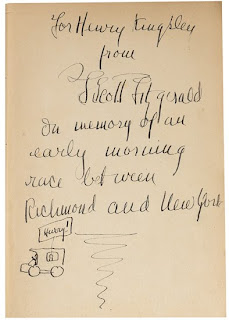 For Henry Kingsley
from
F Scott Fitzgerald
In memory of an
early morning
race between
Richmond and New York
Hurry!